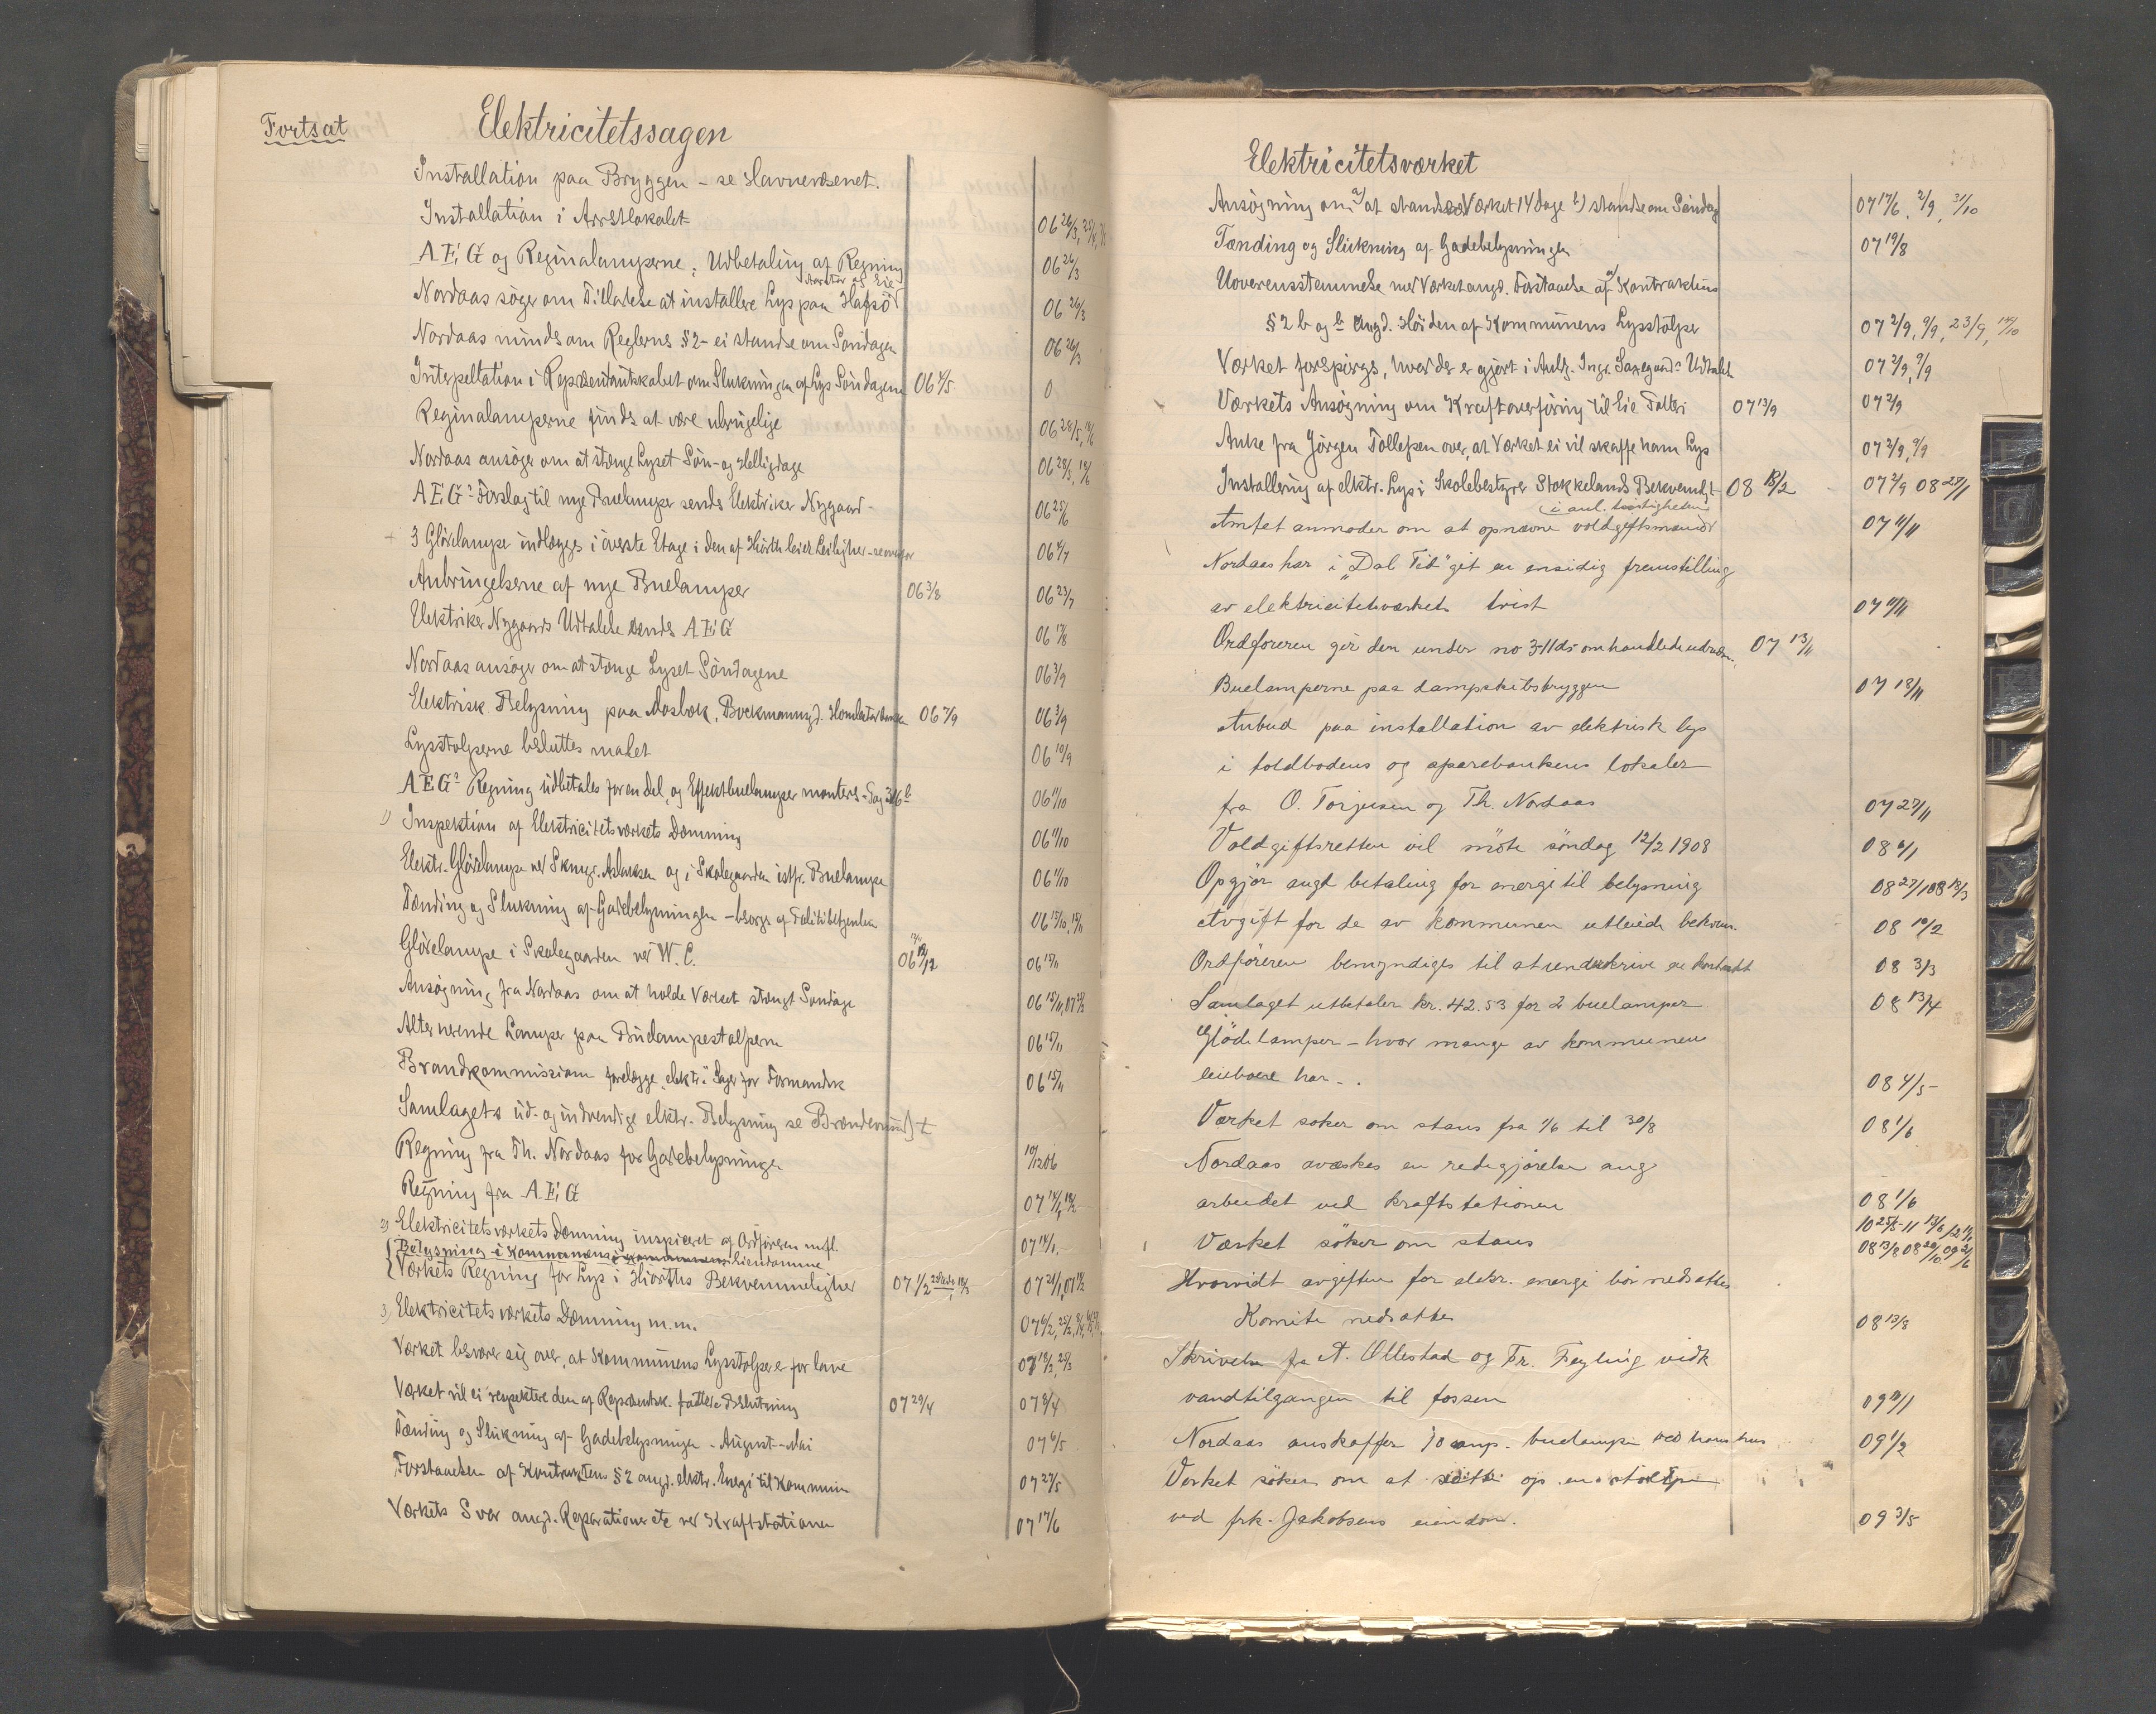 Fortsat Elektricitetssagen
Installation paa Bryggen - se Havnevæsenet.
Installation i Arrestlokalet 06 26/3, 25/4,
A E G og Reginalamperne; Udbetaling af Regning 06 26/3
Nordaas søger om Tilladelse at installere Lys paa Hafsö 06 26/3
Nordaas mindes om Reglernes § 2 - ei standse om Søndagen 06 26/3
Interpellation i Repræsentantskabet om Slukningen af Lys Søndagene 06 4/5 0
Reginalamperne findes at være ubrugelige 06 28/5, 18/6
Nordaas ansøger om at stænge Lyset Søn- og Helligdage 06 28/5, 18/6
A E G's Forslag til nye Buelamper sendes Elektriker Nygaard - 06 25/6
3 Glödelamper indlægges i øverste Etage i den af Hiorth leiet Leilighe - 06 4/7
Anbringelserne af nye Buelamper 06 3/8 06 23/7
Elektriker Nygaards Udtalelse sendes A E G 06 17/8
Nordaas ansøger om at stænge Lyset Söndagene 06 3/9
Elektrisk Belysning paa Mosbæk, Bockmannsgd. 06 7/9 06 3/9
Lysstolperne besluttes malet 06 10/9
A E G's Regning udbetales for en del, og Effektbuelamper monteres - Sag 316 b 06 11/10
1) Inspektion af Elektricitetsværkets Dæmning 06 11/10
Elektr. Glödelampe ved Skmgr. Aslaksen og i Skolegaarden istf. Buelampe 06 11/10
Tænding og Slukning af Gadebelysningen - besørges af Politibetjenten 06 15/10, 15/11
Glödelampe i Skolegaarden ved W. C. 06 12/12 06 15/11
Ansøgning fra Nordaas om at holde Værket stængt Søndage 06 15/11, 07
Alternerende Lamper paa Buelampestolperne 06 15/11
Brandkommissionen forelægge "elektr." Sager for Formandsk 06 15/11
Samlagets ud- og indvendige elektr. Belysning se Brændevins
Regning fra Th. Nordaas for Gadebelysningen 10/12 06
Regning fra A. E. G 07 14/1, 18/2
2) Elektricitetsværkets Dæmning inspiceret af Ordföreren m.fl. 07 14/1.
Belysning i Kommunens Eiendomme
Værkets Regning for Lys i Hiorths Bekvemmeligher 07 1/2 07 21/1, 07
3) Elektricitetsværkets Dæmning m.m. 07 6/2, 25/2,
Værket besværer sig over, at Kommunens Lysstolper er for lave 07 18/3, 25/3
Værket vil ei respektere den af Repræsentsk. fattede Beslutning 07 29/4 07 8/4
Tænding og Slukning af Gadebelysningen - August - Mai 07 6/5
Forstaaelsen af Kontraktens § 2 angd. elektr. Energi til Kommunen 07 27/5
Værkets Svar angd. Reparationer etc ved Kraftstationen 07 17/6
Elektricitetsværket
Ansøgning om a) at standse Værket 14 dage b) standse om Søndag 07 17/6, 2/9, 31/10
Tænding og Slukning af Gadebelysningen 07 19/8
Uoverensstemmelse med Værket angd. Forstaaelse af Kontraktens
§ 2 b og b) angd. Höiden af Kommunens Lysstolper 07 2/9, 9/9, 23/9, 14/10
Værket forespörges, hvad der er gjort i Anl. Ingr. Saxegaards Udtalels 07 2/9, 9/9
Værkets Ansøgning om Kraftoverföring til Eie Potteri 07 13/9 07 2/9
Anke fra Jörgen Tollefsen over, at Værket ei vil skaffe ham Lys 07 2/9, 9/9
Installering af elektr. Lys i Skolebestyrer Stokkelands Bekvemh. 08 18/2 07 2/9 08 27/1
i anl. tvistigheten
Amtet anmoder om at opnævne voldgiftsmænd 07 11/11
Nordaas har i "Dal Tid" git en ensidig fremstilling
av elektricitetsværkets tvist 07 11/11
Ordføreren gir den under no 3-11 ds omhandlede 07 13/11
Buelamperne paa dampskibsbryggen 07 18/11
Anbud paa installation av elektrisk lys
i toldbodens og sparebankens lokaler
fra O. Torjusen og Th. Nordaas 07 27/11
Voldgiftsretten vil möte söndag 12/2 1908 08 6/1
Opgjör angd betaling for energi til belysning 08 27/1 08 18/3
Avgift for de av kommunen utleiede bekvem. 08 10/2
Ordföreren bemyndiges til at underskrive en kontrakt 08 3/3
Samlaget utbetaler kr. 42.53 for 2 buelamper 08 13/4
Glödelamper - hvor mange av kommunens
leieboere har - . 08 4/5
Værket søker om stans fra 1/6 til 30/8 08 1/6
Nordaas avæskes en redegjørelse ang
arbeidet ved kraftstationen 08 1/6
Værket söker om stans 10 25/5 - 11 13/6 12
08 13/8 08 20/10 09 2/6
Hvorvidt avgiften for elekr. energi bör nedsættes
Komite nedsættes 08 13/8
Skrivelse fra A. Ollestad og Fr. Feyling vedk
vandtilgangen til fossen 09 11/1
Nordaas anskaffer 10 amp. buelampe ved hans hus 09 1/2
Verket söker om at sætte op en stolpe
ved frk. Jakobsens eiendom. 09 3/5